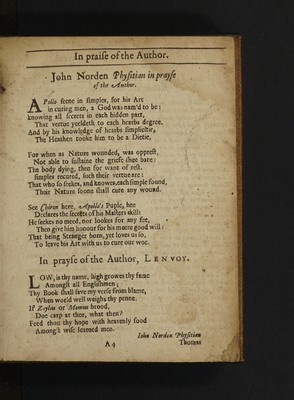 In praise of the Author.
John Norden Physitian in prayse
of the Author.
Apollo seene in simples, for his Art
in curing men, a God was nam'd to be:
knowing all secrets in each hidden part,
That vertue yeeldeth to each hearbs degree.
And by his knowledge of hearbs simplicitie,
The Heathen tooke him to be a Dietie.
For when as Nature wounded, was opprest,
Not able to sustaine the griefe shee bare:
The body dying, then for want of rest,
simples recured, such their vertue are:
That who so seekes, and knowes, each simple found,
Their Nature soone shall cure any wound.
See Chiron here, Apollo's Puple, hee
Declares the secrets of his Maisters skill:
He seekes no meed, nor lookes for any fee,
Then give him honour for his more good will:
That being Stranger born, yet loves us so,
To leave his Art with us to cure our woe.
In prayse of the Author, LENVOY.
LOW, is thy name, high growes thy fame
Amongst all Englishmen;
Thy Book shall save my verse from blame,
When world well weighs thy penne.
If Zoylus or Momus brood,
Doe carp at thee, what then?
Feed thou thy hope with heavenly food
Amongst wise learned men.
Iohn Norden Physitian
A4 Thomas